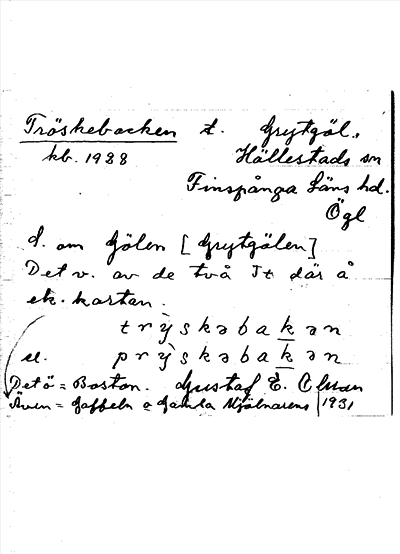 Tröskebacken t. Grytgöl.,
kb. 1928 Hällestads sn
Finspånga Läns hd.
Ögl
S. om Gölen [Grytgölen]
Det v. av de två Tt där å
ek. kartan.
trỳskəbakən
el. prỳskəbakən
Det ö = Bostan. Gustaf E.
Även = Gaffeln o Gamla Mjölnarens 1931